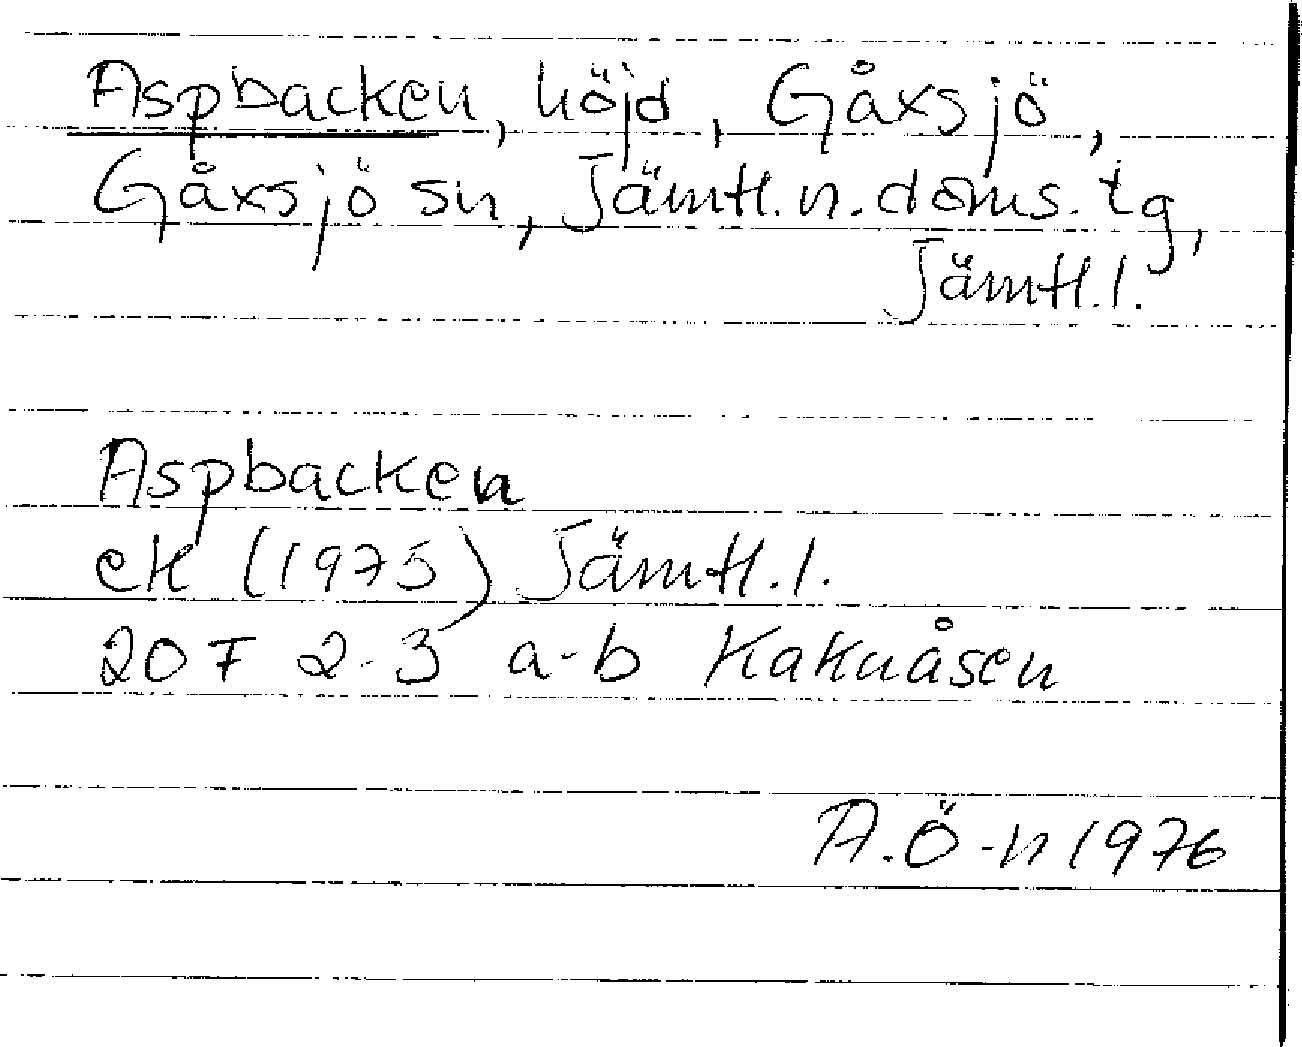 Aspbacken, höjd, Gåxsjö,
Gåxsjö sn, Jämtl. n. doms. tg,
Jämtl. l.
Aspbacken
ek (1975) Jämtl. l.
20 F 2-3 a-b Kakuåsen
A. Ö-n 1976